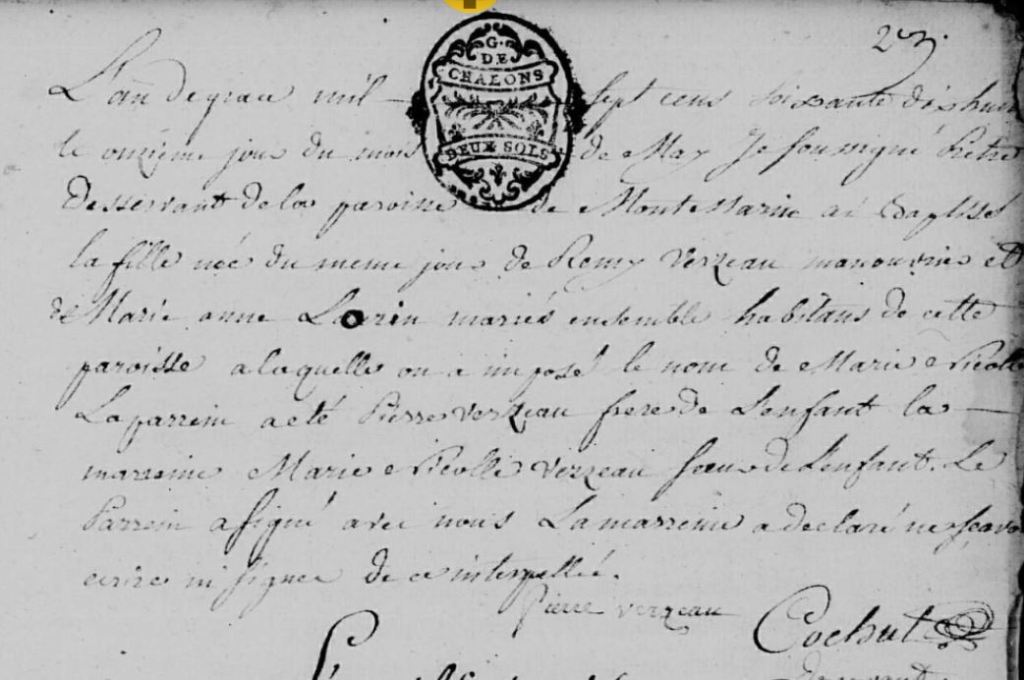 23.
G. DE CHALONS
DEUX SOLS
L'an de grace mil — sept cens soixante dix huit
le onzieme jour du mois de May Je soussigné Prêtre
Desservant de la paroisse de Montmarin ai Baptisé
la fille née du meme jour de Remy Verzeau manouvrier et
de Marie anne Lorin mariés ensemble habitans de cette
paroisse a laquelle on a imposé le nom de Marie Nicolle
Le parrein a eté Pierre Verzeau frere de L'enfant la —
marreine Marie Nicolle Verzeau sœur de L'enfant. Le
Parrein a signé avec nous La marreine a declaré ne sçavoir
ecrire ni signer de ce interpellée.
Pierre verzeau
Cochut